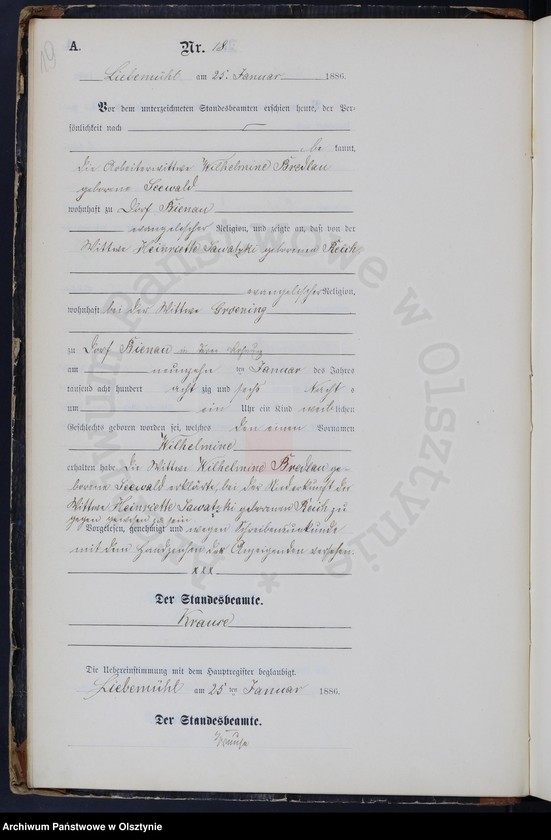 19
A.
Nr. 18.
Liebemühl am 25. Januar 1886.
Vor dem unterzeichneten Standesbeamten erschien heute, der Per-
sönlichkeit nach
be kannt,
die Arbeiterwittwe Wilhelmine Bredlau
geborene Seewald
wohnhaft zu Dorf Bienau
evangelischer Religion, und zeigte an, daß von der
Wittwe Heinriette Sawatzki geborenen Reich
evangelischer Religion,
wohnhaft bei der Wittwe Groening
zu Dorf Bienau in
am neunzehn ten Januar des Jahres
tausend acht hundert acht zig und sechs Nachts
um ein Uhr ein Kind weiblichen
Geschlechts geboren worden sei, welches den einen Vornamen
Wilhelmine
erhalten habe. Die Wittwe Wilhelmine Bredlau ge-
borene Seewald erklärte, bei der Niederkunft der
Wittwe Heinriette Sawatzki geborenen Reich zu
gegen gewesen zu sein
Vorgelesen, genehmigt und wegen Schreibensunkunde
mit dem Handzeichen der Anzeigenden versehen.
xxx
Der Standesbeamte.
Krause
Die Uebereinstimmung mit dem Hauptregister beglaubigt.
Liebemühl am 25 ten Januar 1886.
Der Standesbeamte.
Krause
Archiwum Państwowe w Olsztynie
Archiwum Państwowe w Olsztynie *